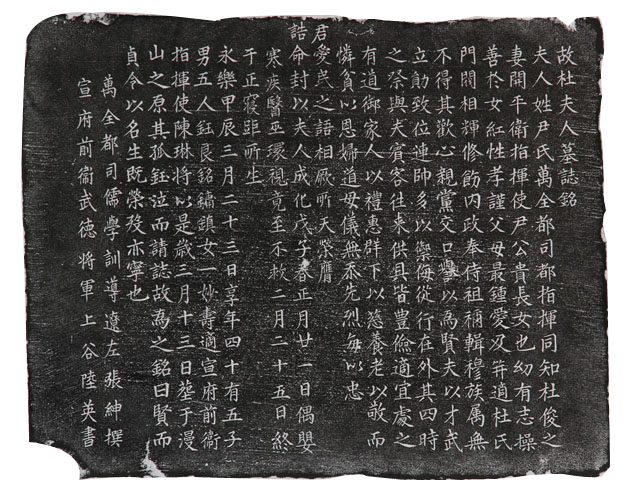 故杜夫人墓誌銘
夫人姓尹氏萬全都司都指揮同知杜俊之
妻開平衛指揮使尹公貴長女也幼有志操
善於女紅性孝謹父母最鍾愛及笄適杜氏
門閥相輝修飭內政奉侍祖禰輯穆族属無
不得其歡心親黨交口譽以為賢夫以才武
立勛致位連帥多以禦侮從行在外其四時
之祭與夫賓客往來供具皆豊儉適宜處之
有道御家人以禮惠群下以慈養老以敬而
憐貧以恩婦道母儀無忝先烈每以忠
君愛民之語相厥所天榮膺
誥命封以夫人成化戊子春正月廿一日偶嬰
寒疾醫巫環視竟至不救二月二十五日終
于正寢距所生
永樂甲辰三月二十三日享年四十有五子
男五人鈺良銘繡鎮女一妙壽適宣府前衛
指揮使陳琳將以是歲三月十三日塟于漫
山之原其孤鈺泣而請誌故為之銘曰賢而
貞令以名生既榮歿亦寧也
萬全都司儒學訓導遼左張紳撰
宣府前衛武德將軍上谷陸英書